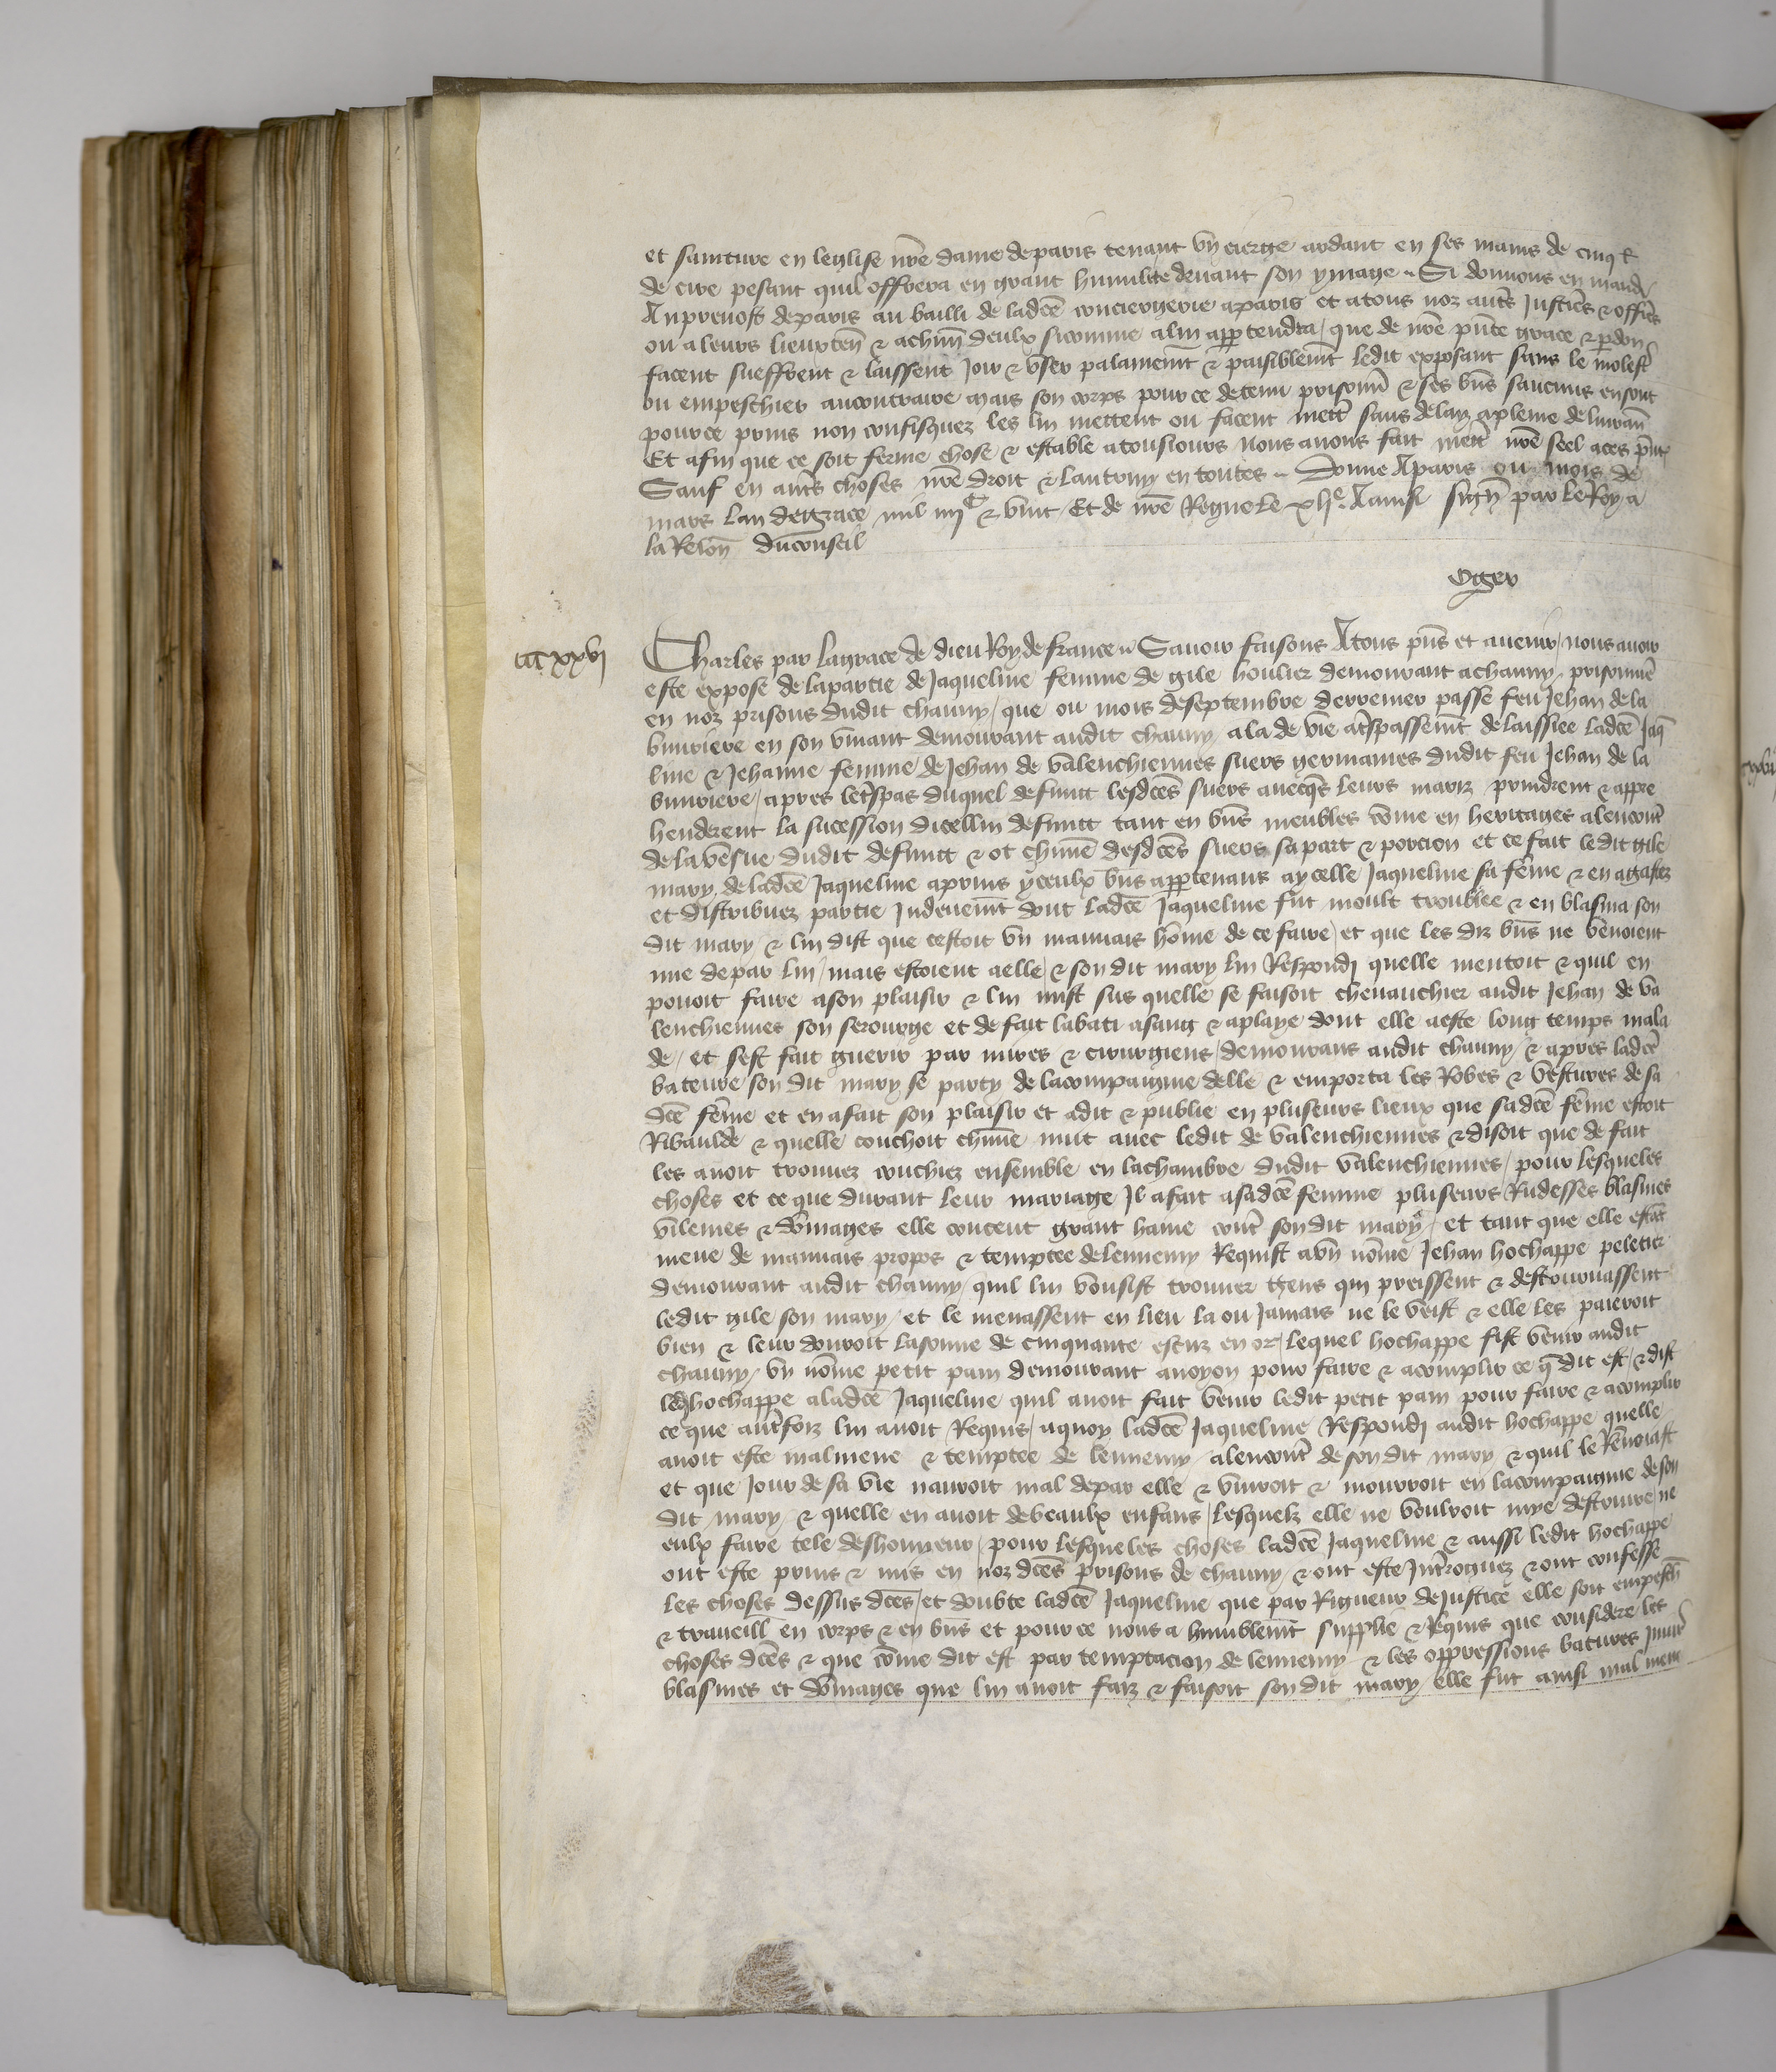 et sainture en leglise nr̄e dame de paris tenant vn cierge ardant en ses mains de cinq l̄
de cire pesant quil offrera en grant humilite deuant son ymage ~ Si donnons en mand̄
Au preuost de paris au bailli de ladc̄e conciergerie a paris et a tous noz autr̄s Justicr̄s & officr̄s
ou a leurs lieuxten̄ & a chūn deulx si comme a lui appartendra / que de nr̄e pn̄te grace & p̄don
facent sueffrent & laissent Joir & vser plainemēt & paisiblemēt ledit exposant sans le molest̄
ou empeschier au contraire mais son corps pour ce detenu prisonn̄ & ses bn̄s saucuns en sont
pour ce prins non confisquez les lui mettent ou facent mettr̄ sans delay a pleine deliurān
Et afin que ce soit ferme chose & estable a tousiours nous auons fait mettr̄ nr̄e seel a ces pn̄tes
Sauf en autr̄s choses nr̄e droit & lautruy en toutes ~ Donne A paris ou mois de
mars lan de grace mil iiijC & vint / Et de nr̄e Regne le xlje. Ainsi sign̄ par le Roy a
la Relon̄ du conseil
Oger
iiijc xxvj
Charles par la grace de dieu Roy de france ~ Sauoir faisons A tous pn̄s et auenir / nous auoir
este expose de la partie de Jaqueline femme de gile houlier demourant a chauny / prisonnie͞
en noz prisons dudit chauny / que ou mois de septembre derrenier passe feu Jehan de la
buuriere en son viuant demourant audit chauny / ala de vie a tr̄spassemēt delaissiee ladc̄e Jaq̄
line & Jehanne femme de Jehan de valenchiennes suers germaines dudit feu Jehan de la
buuriere / apres le tr̄spas duquel defunct lesdc̄es suers auecq̄s leurs mariz prindrent & appre
henderent la sucession dicellui defunct tant en bn̄s meubles cōme en heritages alencontr̄
de la vesue dudit defunct & ot chūne desdc̄es suers sa part & porcion et ce fait ledit gile
mary de ladc̄e Jaqueline a prins yceulx bn̄s appartenans a ycelle Jaqueline sa fēme & en a gastez
et distribuez partie Indeuemēt dont ladc̄e Jaqueline fut moult troublee & en blasma son
dit mary / & lui dist que cestoit vn mauuais hōme de ce faire / et que les diz bn̄s ne venoient
mie de par lui / mais estoient a elle / & son dit mary lui Respondi quelle mentoit & quil en
pouoit faire a son plaisir & lui mist sus quelle se faisoit cheuauchier audit Jehan de va
lenchiennes son serourge et de fait la bati a sang & a playe dont elle a este long temps mala
de / et sest fait guerir par mires & cirurgiens / demourans audit chauny / & apres ladc̄e
bateure son dit mary se party de la compaignie delle & emporta les Robes & vestures de sa
dc̄e fēme et en a fait son plaisir et a dit & publie en pluseurs lieux que sadc̄e fēme estoit
Ribaulde & quelle couchoit chūne nuit auec ledit de valenchiennes & disoit que de fait
les auoit trouuez couchiez ensemble en la chambre dudit valenchiennes / pour lesqueles
choses et ce que durant leur mariage Il a fait a sadc̄e femme pluseurs Rudesses blasmes
vilenies & dōmages elle conceut grant haine contr̄ son dit mary / et tant que elle estāt
meue de mauuais propos & temptee de lennemy Requist a vn nōme Jehan hochappe peletier
demourant audit chauny / quil lui voulsist trouuer gens qui preissent & destournassent
ledit gile son mary / et le menassent en lieu la ou Jamais ne le veist & elle les paieroit
bien & leur donroit la somme de cinquante escuz en or / lequel hochappe fist venir audit
chauny / vn nōme petit pain demourant a noyon pour faire & acomplir ce q̄ dit est / & dist
led̄ hochappe a ladc̄e Jaqueline quil auoit fait venir ledit petit pain pour faire & acomplir
ce que autr̄foiz lui auoit Requis / a quoy ladc̄e Jaqueline Respondi audit hochappe quelle
auoit este mal meue & temptee de lennemy / alencontr̄ de son dit mary & quil le Renuoiast
et que Jour de sa vie nauroit mal de par elle & viuroit & mourroit en la compaignie de son
dit mary / & quelle en auoit de beaulx enfans / lesquelz elle ne vouldroit mye destruire / ne
eulx faire tele deshonneur / pour lesqueles choses ladc̄e Jaqueline & aussi ledit hochappe
ont este prins & mis en noz dc̄es prisons de chauny / & ont este Intr̄roguez & ont confesse
les choses dessus dc̄es / et doubte ladc̄e Jaqueline que par Rigueur de Justice elle soit empesch̄
& traueill̄ en corps & en bn̄s et pour ce nous a humblemēt supplie & Requis que considere les
choses dc̄es & que cōme dit est par temptacion de lennemy & les oppressions batures Iniur̄
blasmes et dōmages que lui auoit faiz & faisoit son dit mary / elle fut ainsi mal meue